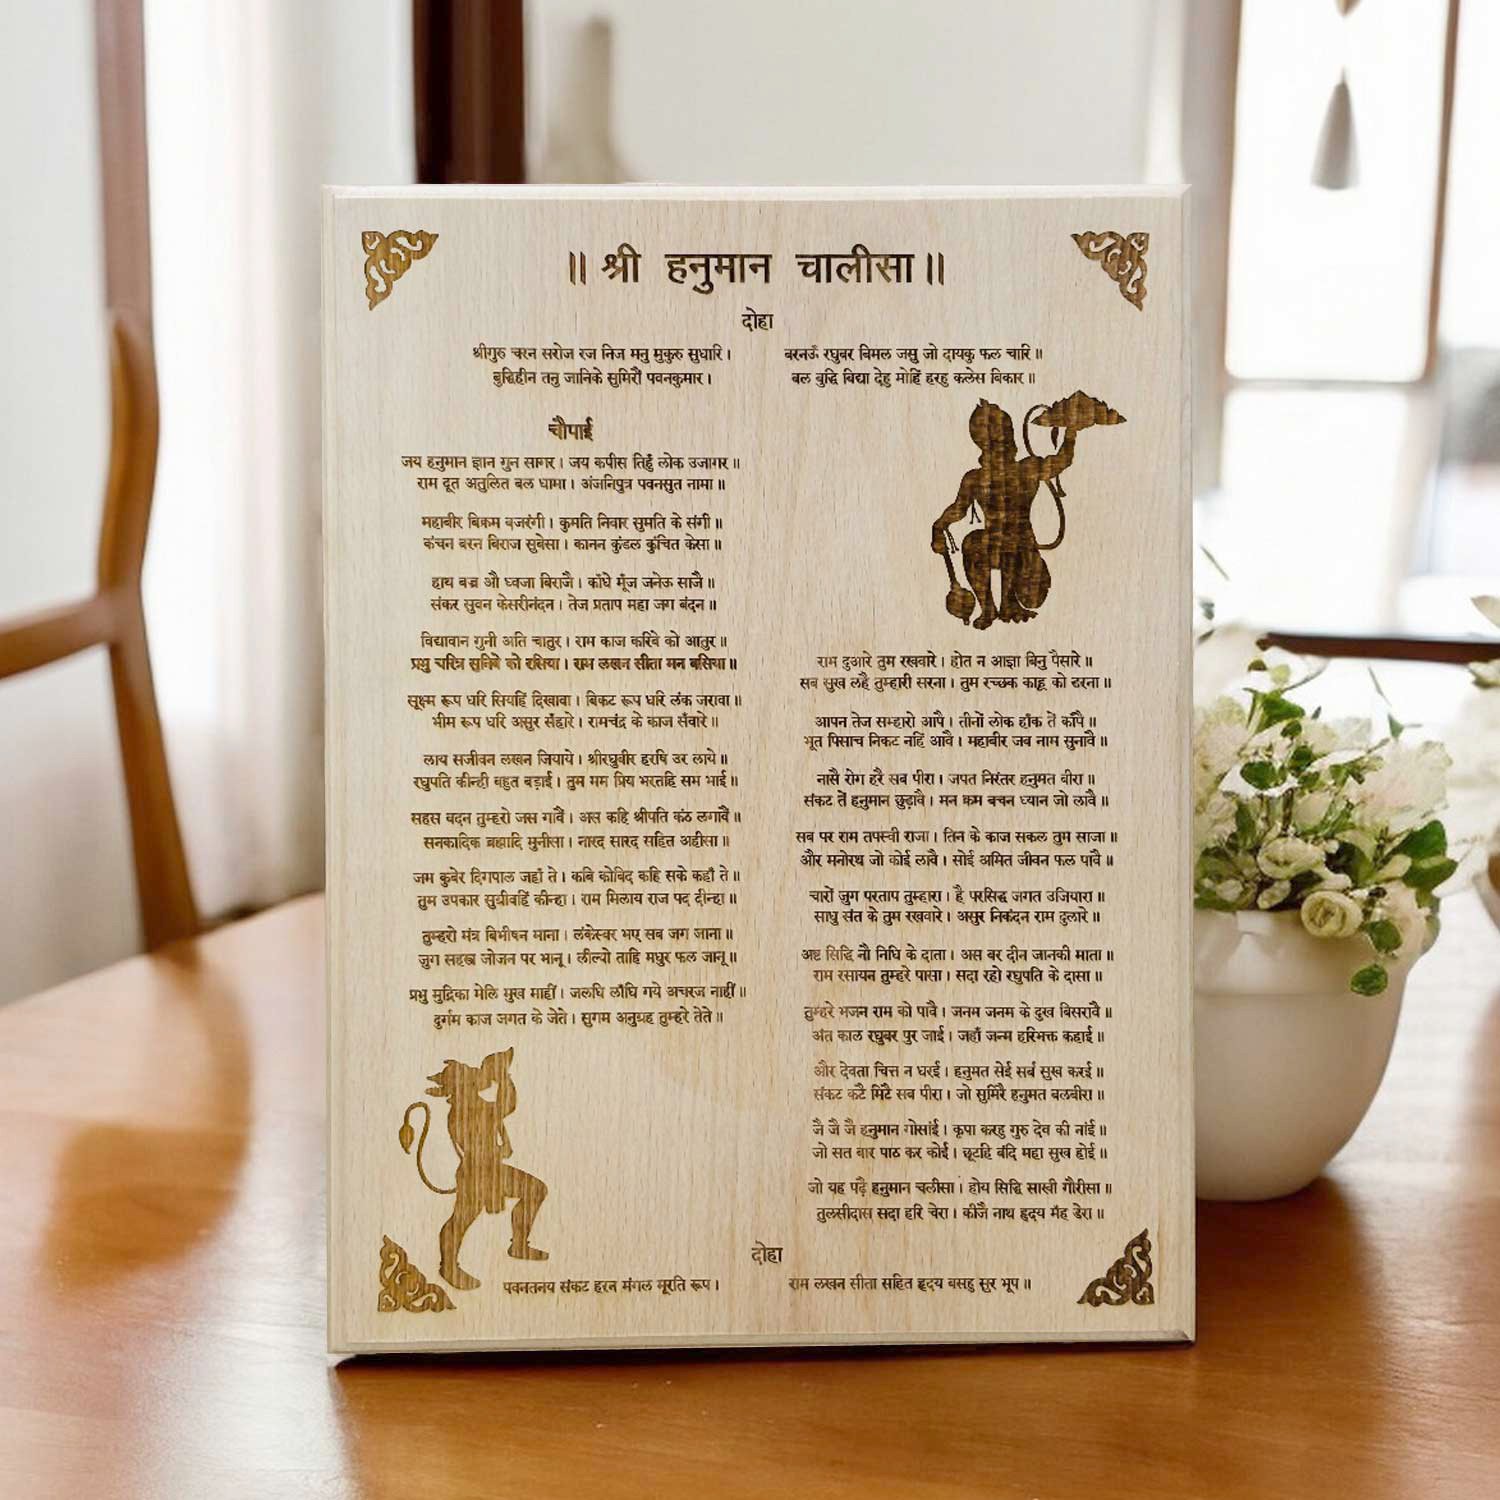 ॥ श्री हनुमान चालीसा॥
दोहा
श्रीगुरु चरन सरोज रज निज मनु मुकुरु सुधारि।
बरनऊँ रघुबर बिमल जसु जो दायकु फल चारि॥
बुद्धिहीन तनु जानिके सुमिरौं पवनकुमार।
बल बुद्धि बिद्या देहु मोहिं हरहु कलेस बिकार॥
चौपाई
जय हनुमान ज्ञान गुन सागर। जय कपीस तिहुँ लोक उजागर॥
राम दूत अतुलित बल धामा। अंजनिपुत्र पवनसुत नामा॥
महाबीर बिक्रम बजरंगी। कुमति निवार सुमति के संगी॥
कंचन बरन बिराज सुबेसा। कानन कुंडल कुंचित केसा॥
हाथ बज्र औ ध्वजा बिराजै। काँधे मूँज जनेऊ साजै॥
संकर सुवन केसरीनंदन। तेज प्रताप महा जग बंदन॥
विद्यावान गुनी अति चातुर। राम काज करिबे को आतुर॥
प्रभु चरित्र सुनिबे को रसिया। राम लखन सीता मन बसिया॥
सूक्ष्म रूप धरि सियहिं दिखावा। बिकट रूप धरि लंक जरावा॥
भीम रूप धरि असुर सँहारे। रामचंद्र के काज सँवारे॥
लाय सजीवन लखन जियाये। श्रीरघुवीर हरषि उर लाये॥
रघुपति कीन्ही बहुत बड़ाई। तुम मम प्रिय भरतहि सम भाई॥
सहस बदन तुम्हरो जस गावैं। अस कहि श्रीपति कंठ लगावैं॥
सनकादिक ब्रह्मादि मुनीसा। नारद सारद सहित अहीसा॥
जम कुबेर दिगपाल जहाँ ते। कबि कोबिद कहि सके कहाँ ते॥
तुम उपकार सुग्रीवहिं कीन्हा। राम मिलाय राज पद दीन्हा॥
तुम्हरो मंत्र बिभीषन माना। लंकेस्वर भए सब जग जाना॥
जुग सहस्त्र जोजन पर भानू। लील्यो ताहि मधुर फल जानू॥
प्रभु मुद्रिका मेलि मुख माहीं। जलधि लाँघि गये अचरज नाहीं॥
दुर्गम काज जगत के जेते। सुगम अनुग्रह तुम्हरे तेते॥
राम दुआरे तुम रखवारे। होत न आज्ञा बिनु पैसारे॥
सब सुख लहै तुम्हारी सरना। तुम रच्छक काहू को डरना॥
आपन तेज सम्हारो आपै। तीनों लोक हाँक तें काँपै॥
भूत पिसाच निकट नहिं आवै। महाबीर जब नाम सुनावै॥
नासै रोग हरै सब पीरा। जपत निरंतर हनुमत बीरा॥
संकट तें हनुमान छुड़ावै। मन क्रम बचन ध्यान जो लावै॥
सब पर राम तपस्वी राजा। तिन के काज सकल तुम साजा॥
और मनोरथ जो कोई लावै। सोई अमित जीवन फल पावै॥
चारों जुग परताप तुम्हारा। है परसिद्ध जगत उजियारा॥
साधु संत के तुम रखवारे। असुर निकंदन राम दुलारे॥
अष्ट सिद्धि नौ निधि के दाता। अस बर दीन जानकी माता॥
राम रसायन तुम्हरे पासा। सदा रहो रघुपति के दासा॥
तुम्हरे भजन राम को पावै। जनम जनम के दुख बिसरावै॥
अंत काल रघुबर पुर जाई। जहाँ जन्म हरिभक्त कहाई॥
और देवता चित्त न धरई। हनुमत सेई सर्ब सुख करई॥
संकट कटै मिटै सब पीरा। जो सुमिरै हनुमत बलबीरा॥
जै जै जै हनुमान गोसांई। कृपा करहु गुरु देव की नांई॥
जो सत बार पाठ कर कोई। छूटहि बंदि महा सुख होई॥
जो यह पढ़ै हनुमान चलीसा। होय सिद्धि साखी गौरीसा॥
तुलसीदास सदा हरि चेरा। कीजै नाथ हृदय मँह डेरा॥
दोहा
पवनतनय संकट हरन मंगल मूरति रूप।
राम लखन सीता सहित हृदय बसहु सुर भूप॥